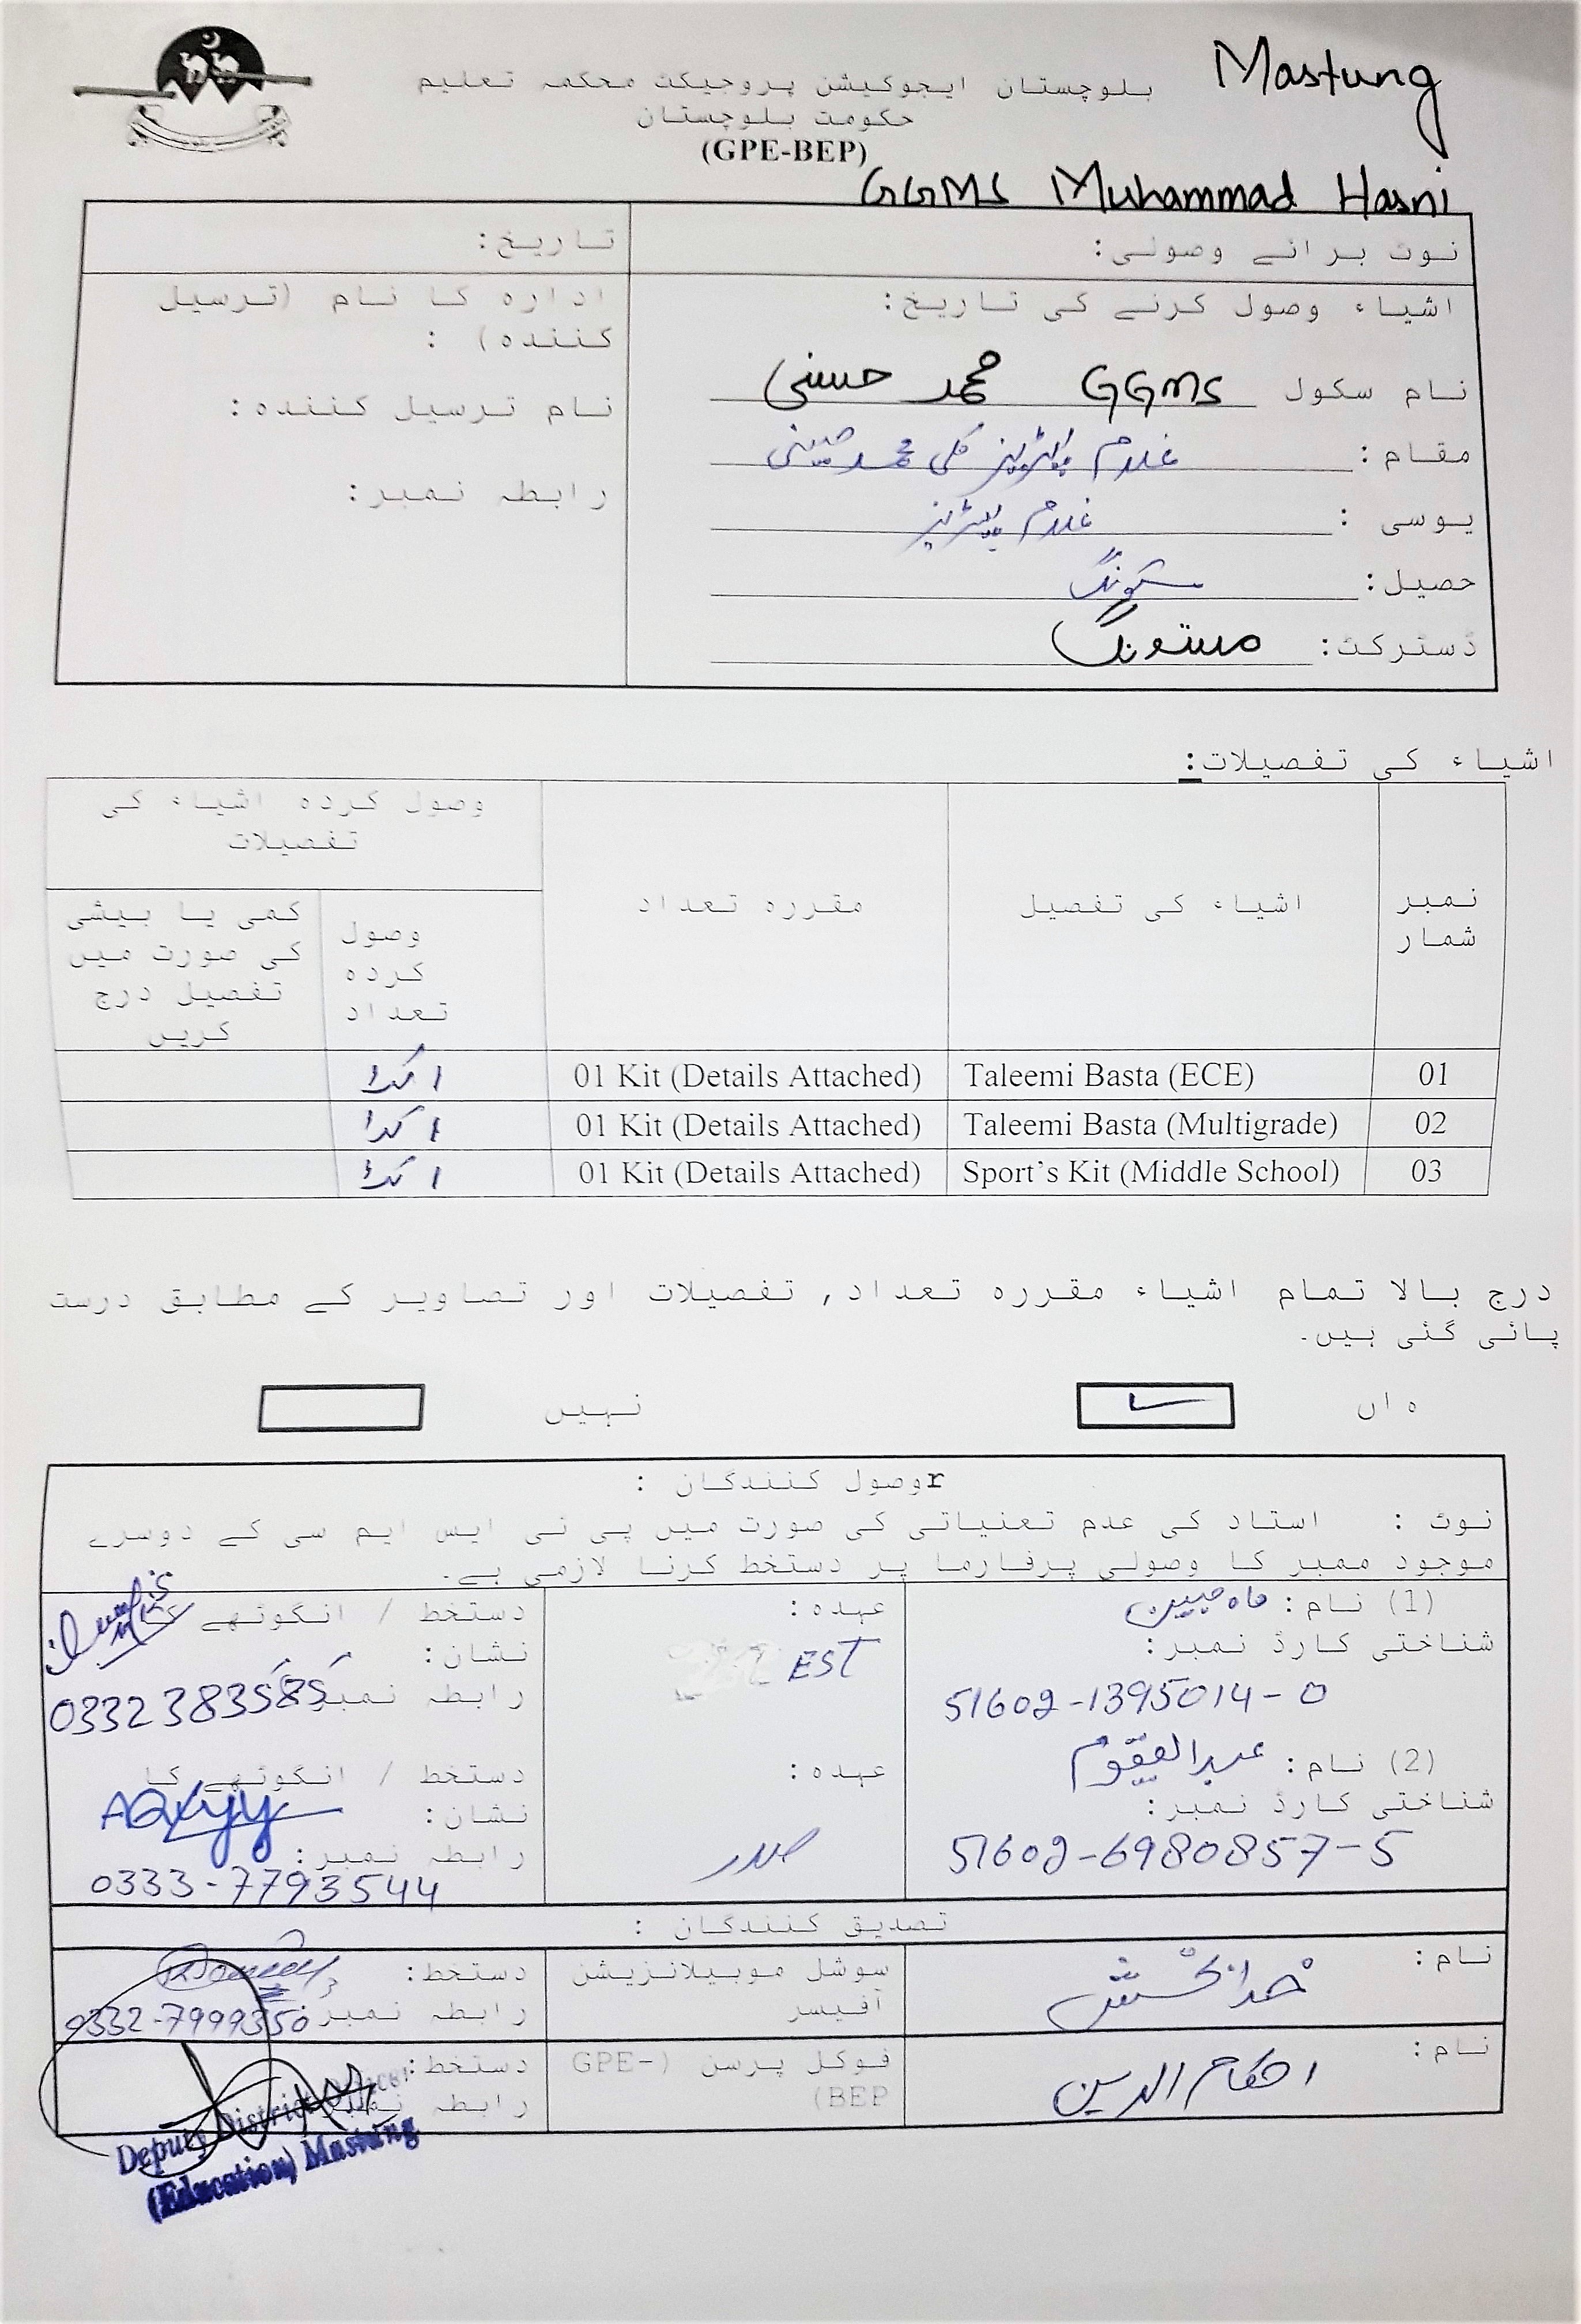 Mastung
بلوچستان ایجوکیشن پروجیکٹ محکمہ تعلیم
حکومت بلوچستان
(GPE-BEP)
GGMS Muhammad Hasni
نوٹ برائے وصولی:
تاریخ:
اشیاء وصول کرنے کی تاریخ:
نام سکول GGMS محمد حسنی
مقام: غلام پڑینز کلی محمد حسنی
یوسی : غلام پڑینز
حصیل: مستونگ
ڈسٹرکٹ: مستونگ
ادارہ کا نام (ترسیل
کنندہ) :
نام ترسیل کنندہ:
رابطہ نمبر:
اشیاء کی تفصیلات:
نمبر شمار
اشیاء کی تفصیل
مقررہ تعداد
وصول کردہ اشیاء کی
تفصیلات
وصول
کردہ
تعداد
کمی یا بیشی
کی صورت میں
تفصیل درج
کریں
01 Taleemi Basta (ECE) 01 Kit (Details Attached)
02 Taleemi Basta (Multigrade) 01 Kit (Details Attached)
03 Sport's Kit (Middle School) 01 Kit (Details Attached)
درج بالا تمام اشیاء مقررہ تعداد, تفصیلات اور تصاویر کے مطابق درست
پائی گئی ہیں۔
ہاں
نہیں
rوصول کنندگان :
نوٹ : استاد کی عدم تعنیاتی کی صورت میں پی ٹی ایس ایم سی کے دوسرے
موجود ممبر کا وصولی پرفارما پر دستخط کرنا لازمی ہے۔
(1) نام: ماہ جبین
شناختی کارڈ نمبر:
51602-1395014-0
عہدہ:
EST
دستخط / انگوٹھے کا
نشان:
رابطہ نمبر:
0332 383585
(2) نام: عبدالقیوم
شناختی کارڈ نمبر:
51602-6980857-5
عہدہ:
صدر
دستخط / انگوٹھے کا
نشان:
رابطہ نمبر:
0333-7793544
تصدیق کنندگان :
نام: خدا بخش
سوشل موبیلائزیشن
آفیسر
دستخط:
رابطہ نمبر: 0332-7999350
نام: احکام الدین
فوکل پرسن (GPE-
BEP)
دستخط:
رابطہ نمبر:
Deputy District Officer
(Education) Mastung